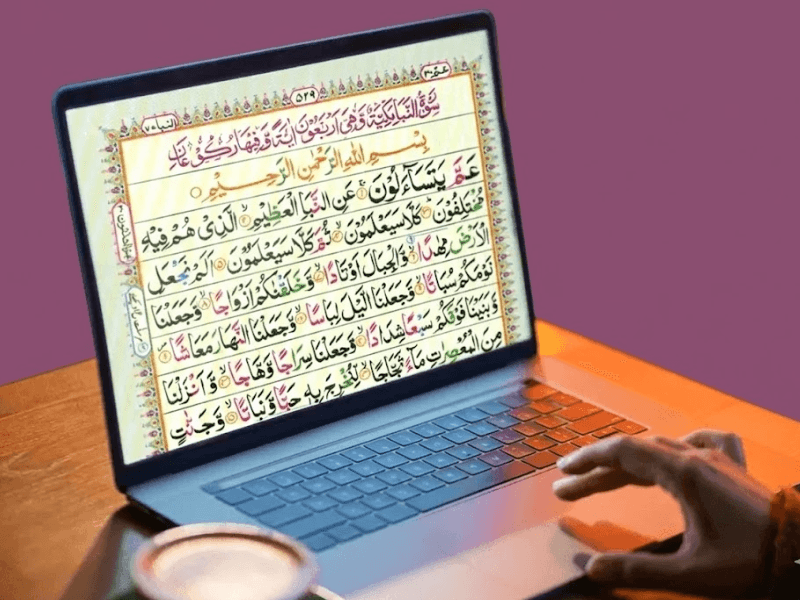 عمّ ۳۰
۵۲۹
سُوْرَةُ النَّبَاِ مَكِّيَّةٌ وَّهِيَ اَرْبَعُوْنَ اٰيَةً وَّفِيْهَا رُكُوْعَانِ
بِسْمِ اللهِ الرَّحْمٰنِ الرَّحِيْمِ
عَمَّ يَتَسَآءَلُوْنَ ۝۱ عَنِ النَّبَاِ الْعَظِيْمِ ۝۲ الَّذِيْ هُمْ فِيْهِ
مُخْتَلِفُوْنَ ۝۳ كَلَّا سَيَعْلَمُوْنَ ۝۴ ثُمَّ كَلَّا سَيَعْلَمُوْنَ ۝۵ اَلَمْ نَجْعَلِ
الْاَرْضَ مِهٰدًا ۝۶ وَّالْجِبَالَ اَوْتَادًا ۝۷ وَّخَلَقْنٰكُمْ اَزْوَاجًا ۝۸ وَّجَعَلْنَا
نَوْمَكُمْ سُبَاتًا ۝۹ وَّجَعَلْنَا الَّيْلَ لِبَاسًا ۝۱۰ وَّجَعَلْنَا النَّهَارَ مَعَاشًا ۝۱۱
وَّبَنَيْنَا فَوْقَكُمْ سَبْعًا شِدَادًا ۝۱۲ وَّجَعَلْنَا سِرَاجًا وَّهَّاجًا ۝۱۳ وَّاَنْزَلْنَا
مِنَ الْمُعْصِرٰتِ مَآءً ثَجَّاجًا ۝۱۴ لِّنُخْرِجَ بِهٖ حَبًّا وَّنَبَاتًا ۝۱۵ وَّجَنّٰتٍ